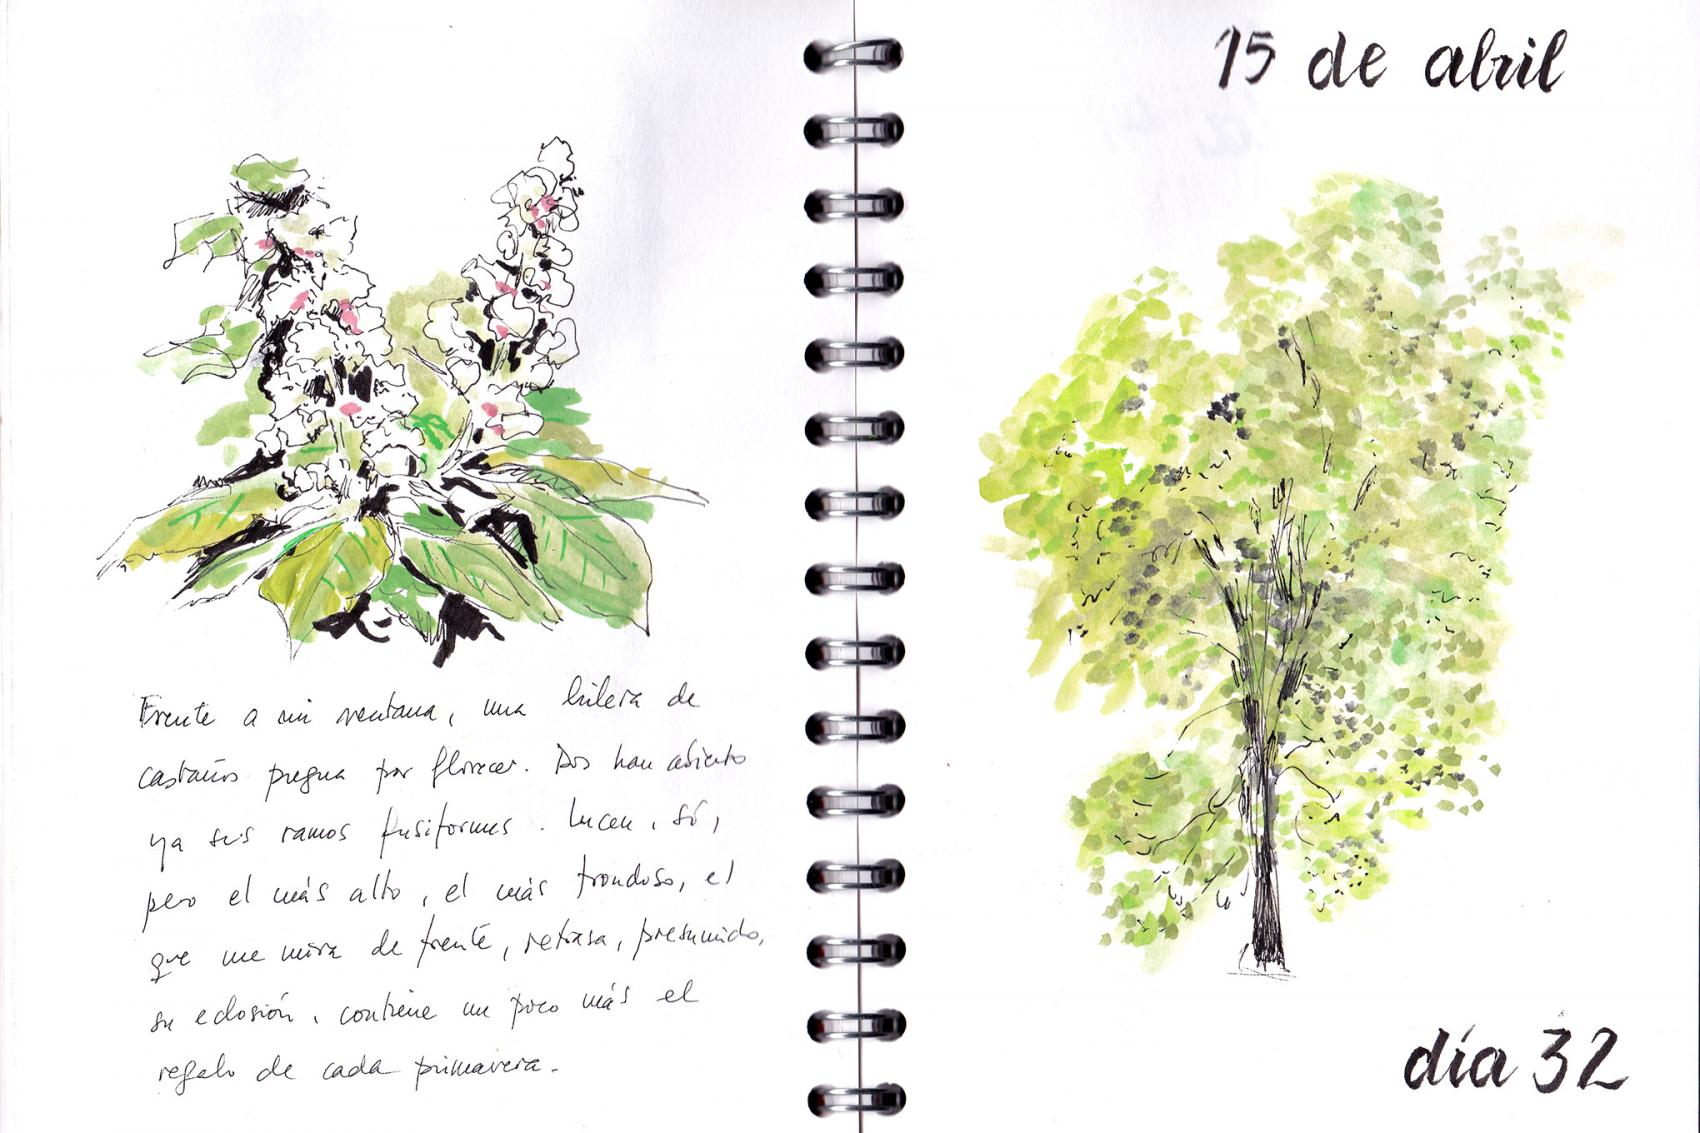 Frente a mi ventana, una hilera de
castaños pugna por florecer. Dos han abierto
ya sus ramos fusiformes. Lucen, sí,
pero el más alto, el más frondoso, el
que me mira de frente, retrasa, presumido,
su eclosión, contiene un poco más el
regalo de cada primavera.
15 de abril
día 32